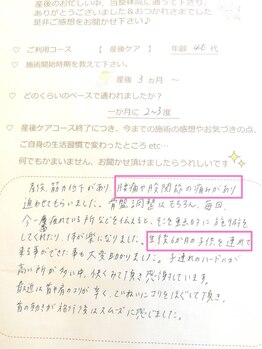 産後のお忙しい中、当整体院に通って下さり
ありがとうございました&おつかれさまでした
是非ご感想をお聞かせ下さい♪
♡ ご利用コース 産後ケア 1 年齢 40代
♡ 施術開始時期を教えて下さい。
産後 3ヵ月 〜
♡ どのくらいのペースで通われましたか?
一か月に 2〜3 度
♡ 産後ケアコース終了につき、今までの施術の感想やお気づきの点、
ご自身の生活習慣で変わったところ etc…
何でもかまいません、お聞かせ頂けましたらうれしいです
腰痛や股関節の痛みがあり
通わせてもらいました。骨盤調整はもちろん、毎回、
今一番疲れている所などを伝えると、そこを重点的に施術
してくれたり、体が楽になりました。生後6か月の子供を連れて
来る事ができた事も大変助かりました。子連れのハードルが
高い所が多い中、快くみて頂き感謝しています。
最近は首や肩のコリが辛く、しつこいコリをほぐして頂き、
首の動きが施術後はスムーズに感じました。